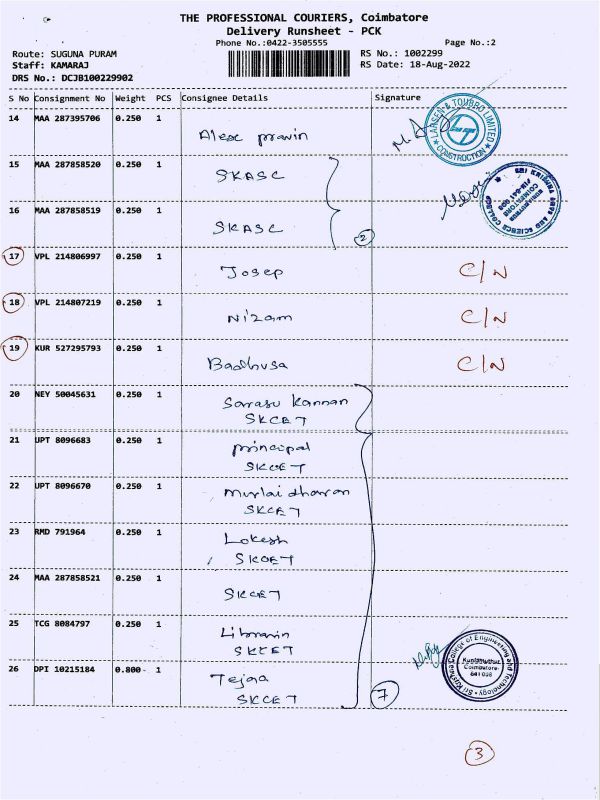 THE PROFESSIONAL COURIERS, Coimbatore
Delivery Runsheet - PCK
Phone No.:0422-3505555 Page No.:2
Route: SUGUNA PURAM RS No.: 1002299
Staff: KAMARAJ RS Date: 18-Aug-2022
DRS No.: DCJB100229902
S No Consignment No Weight PCS Consignee Details Signature
14 MAA 287395706 0.250 1
Alex pravin
LARSEN & TOUBRO LIMITED
CONSTRUCTION
15 MAA 287858520 0.250 1
SKASC
16 MAA 287858519 0.250 1
SKASC
2
SRI KRISHNA ARTS AND SCIENCE COLLEGE
COIMBATORE
17 VPL 214806997 0.250 1
Josep C/N
18 VPL 214807219 0.250 1
Nizam C/N
19 KUR 527295793 0.250 1
Badhusa C/N
20 NEY 50045631 0.250 1
Sarasu Kannan
SKCET
21 UPT 8096683 0.250 1
principal
SKCET
22 UPT 8096670 0.250 1
Murlaidharan
SKCET
23 RMD 791964 0.250 1
Lokesh
SKCET
24 MAA 287858521 0.250 1
SKCET
25 TCG 8084797 0.250 1
Librarin
SKCET
26 DPI 10215184 0.800 1
Tejaa
SKCET
7
Sri Krishna College of Engineering and Technology
Kuniamuthur
Coimbatore
641 008
3